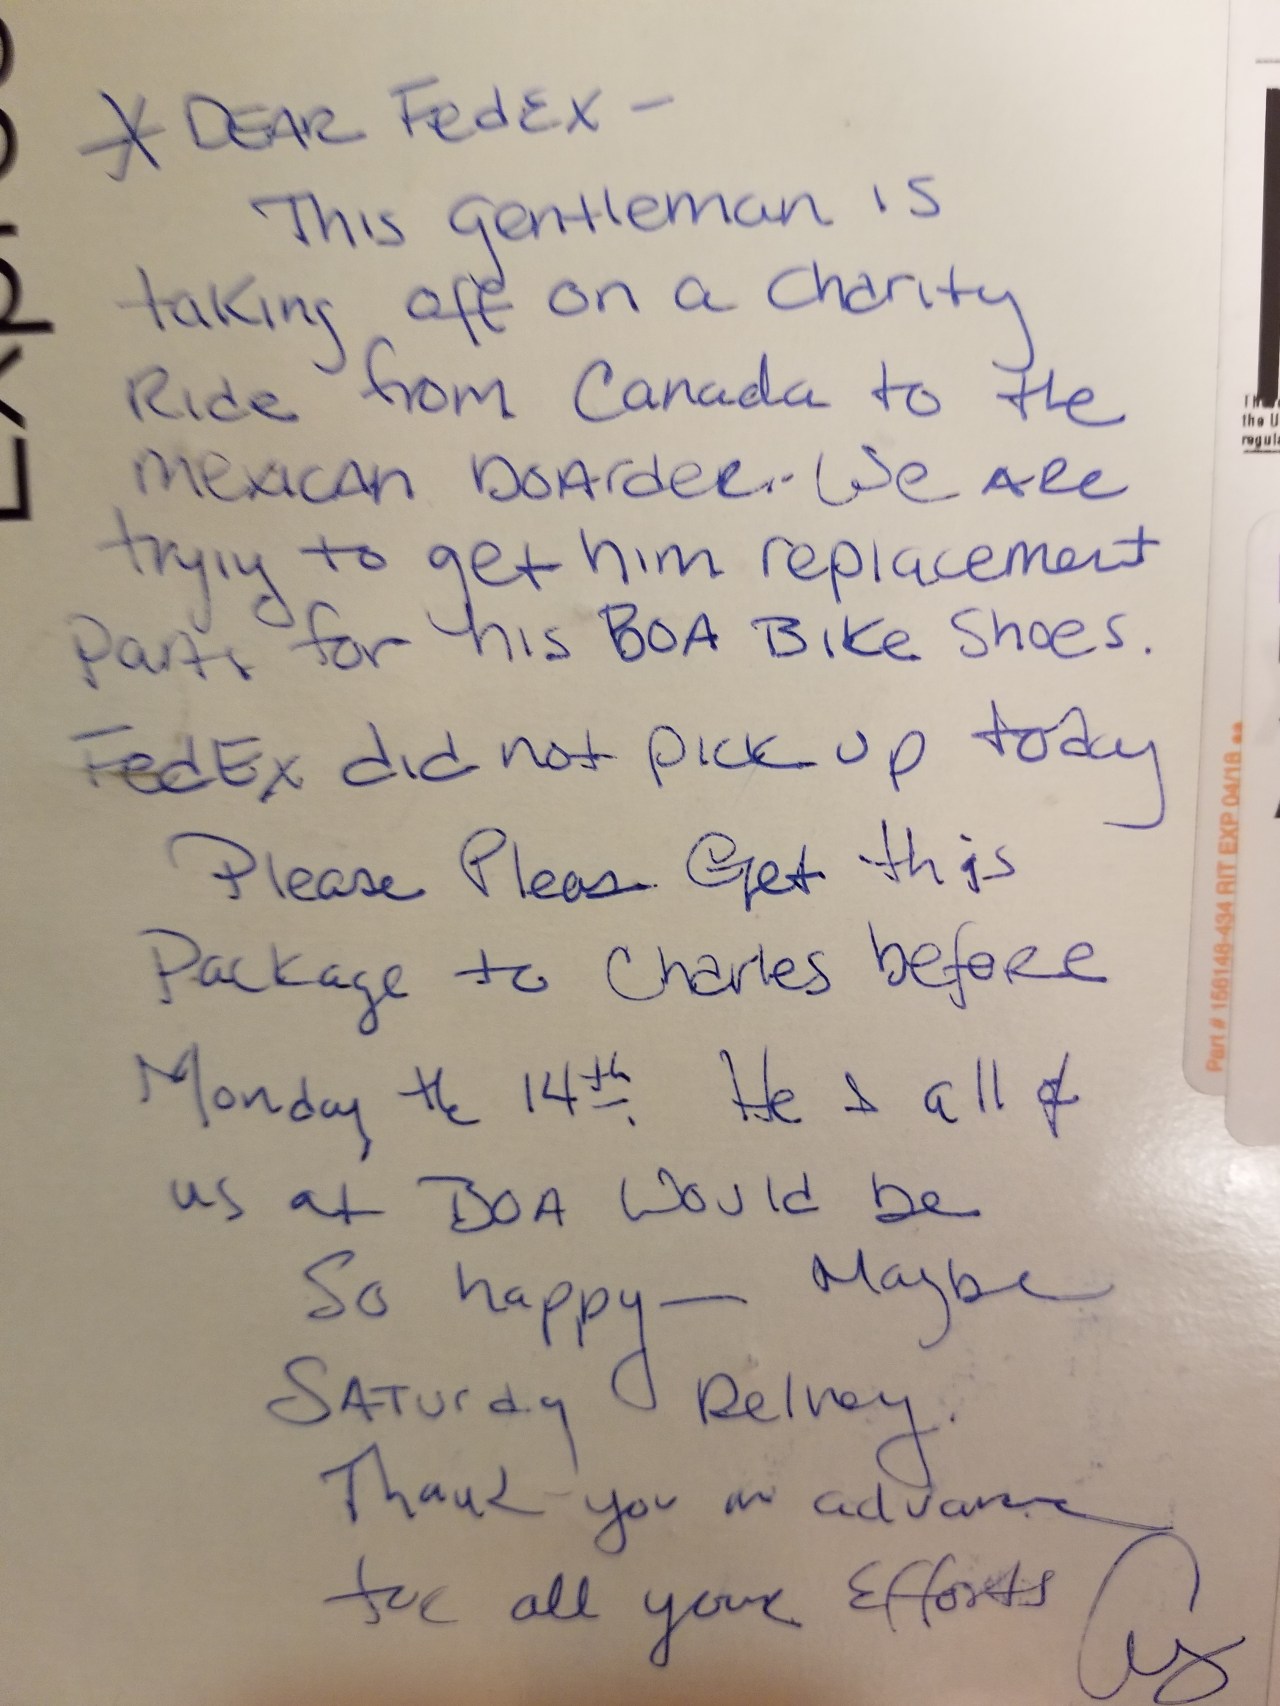 Express
* DEAR FedEx -
This gentleman is
taking off on a charity
Ride from Canada to the
mexican Boarder. We are
trying to get him replacement
Parts for his BOA Bike Shoes.
FedEx did not pick up today
Please Please Get this
Package to Charles before
Monday the 14th. He & all of
us at BOA Would be
So happy — Maybe
SATurday Delivery.
Thank you in advance
for all your Efforts
the U
regul
Part # 156148-434 RIT EXP 04/18